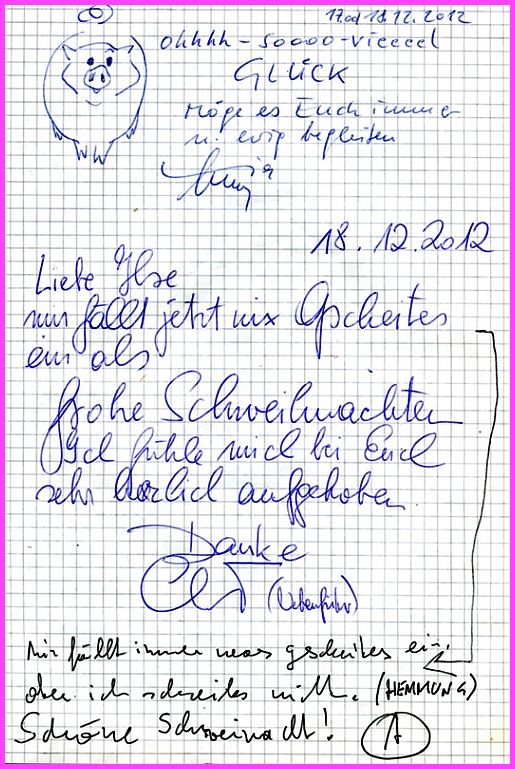 17. od 18.12.2012
ohhhh - soooo - vieeeel
GLÜCK
Möge es Euch immer
u. ewig begleiten
18.12.2012
Liebe Ilse
mir fällt jetzt nix Gscheites
ein als
frohe Schweihnachten
Ich fühle mich bei Euch
sehr herzlich aufgehoben
Danke
Mir fällt immer was gscheites ein,
aber ich schreibs nicht. (HEMMUNG)
Schöne Schweinacht!
A